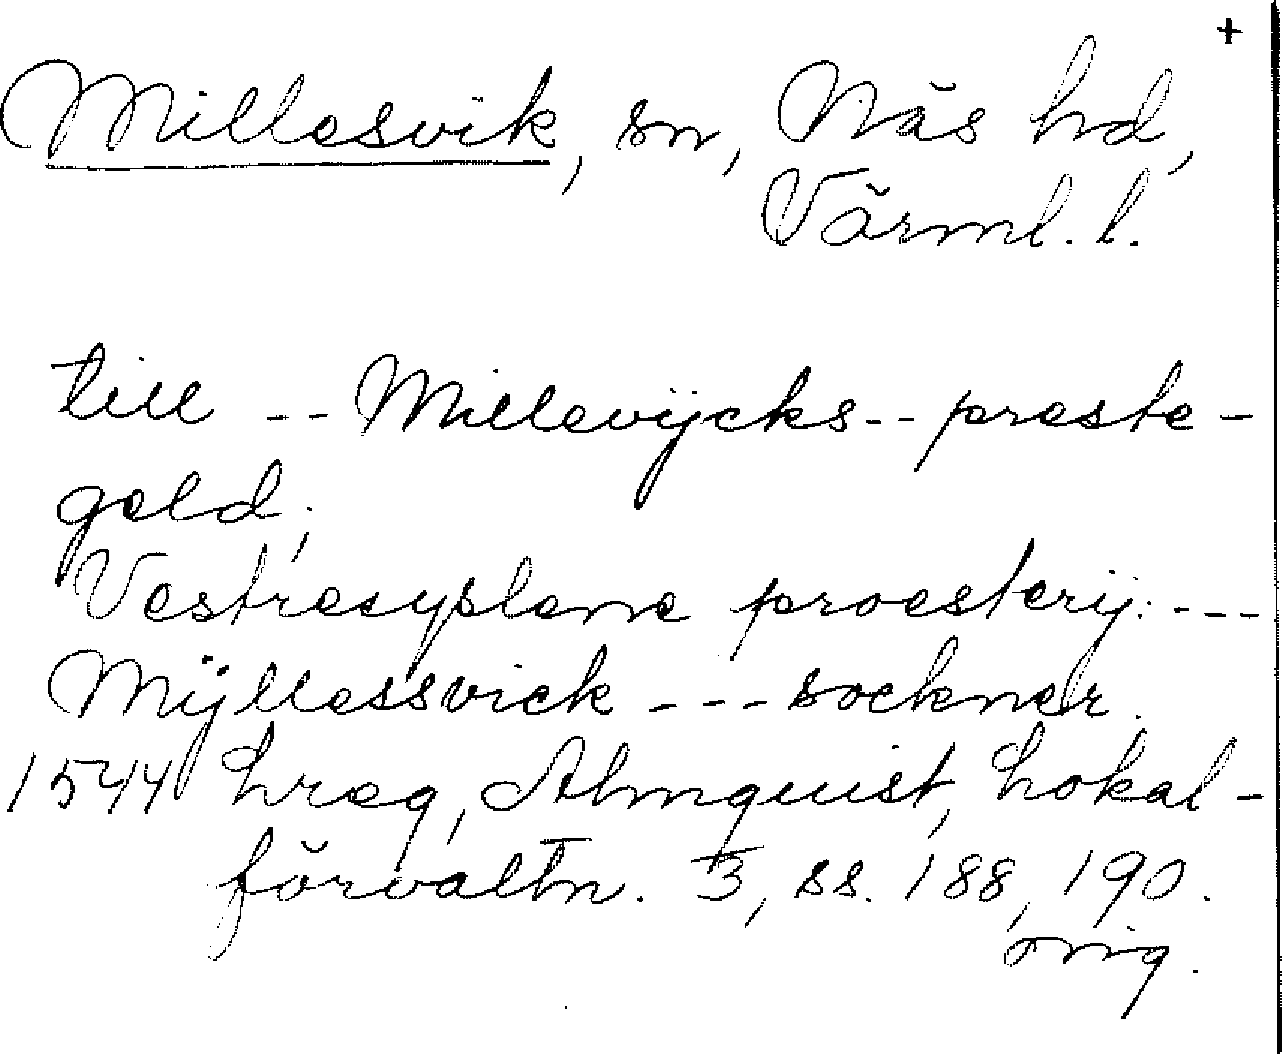 +
Millesvik, sn, Näs hd,
Värml. l.
till -- Millevijcks -- preste-
geld;
Vestresyslena proesterij: ---
Mÿllessvick --- sockner.
1544 hreg, Almquist, Lokal-
förvaltn. 3, ss. 188, 190.
orig.